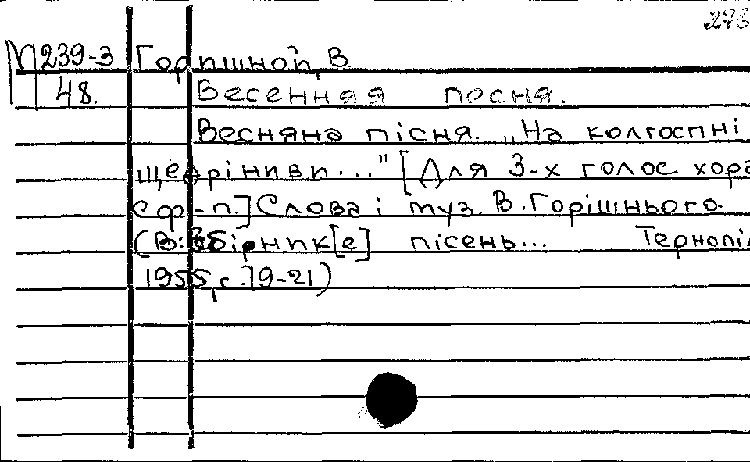 273
М239-3 Горишной, В
48. Весенняя песня.
Весняна пісня. „На колгоспні
щедрі ниви..." [Для 3-х голос. хора
с ф-п.] Слова і муз. В. Горішнього.
(В: Збірник[е] пісень... Тернопіл
1955, с. 19-21)